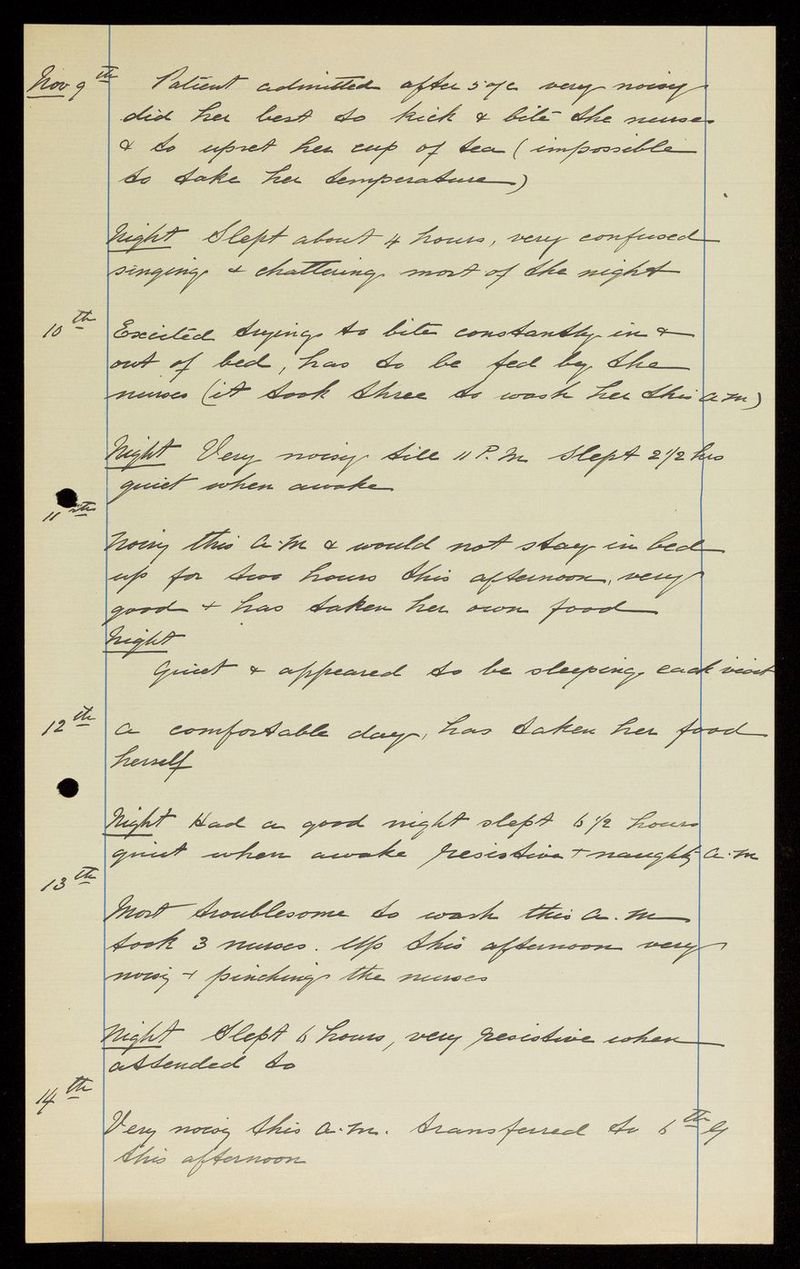 Nov 9th Patient admitted after 5 o/c very noisy
did her best to kick & bite the nurses
& to upset her cup of tea (impossible
to take her temperature)
Night Slept about 4 hours, very confused
singing & chattering most of the night
10th Excited trying to bite constantly in &
out of bed, has to be fed by the
nurses (it took three to wash her this a.m)
Night Very noisy till 11 P.M slept 2 1/2 hrs
quiet when awake
11th
Noisy this a.m & would not stay in bed
up for two hours this afternoon, very
good & has taken her own food
Night
Quiet & appeared to be sleeping each visit
12th a comfortable day, has taken her food
herself
Night Had a good night slept 6 1/2 hours
quiet when awake resistive & naughty a.m
13th
Most troublesome to wash this a.m
took 3 nurses. Up this afternoon very
noisy & pinching the nurses
Night Slept 6 hours, very resistive when
attended to
14th
Very noisy this a.m. transferred to 6th
this afternoon